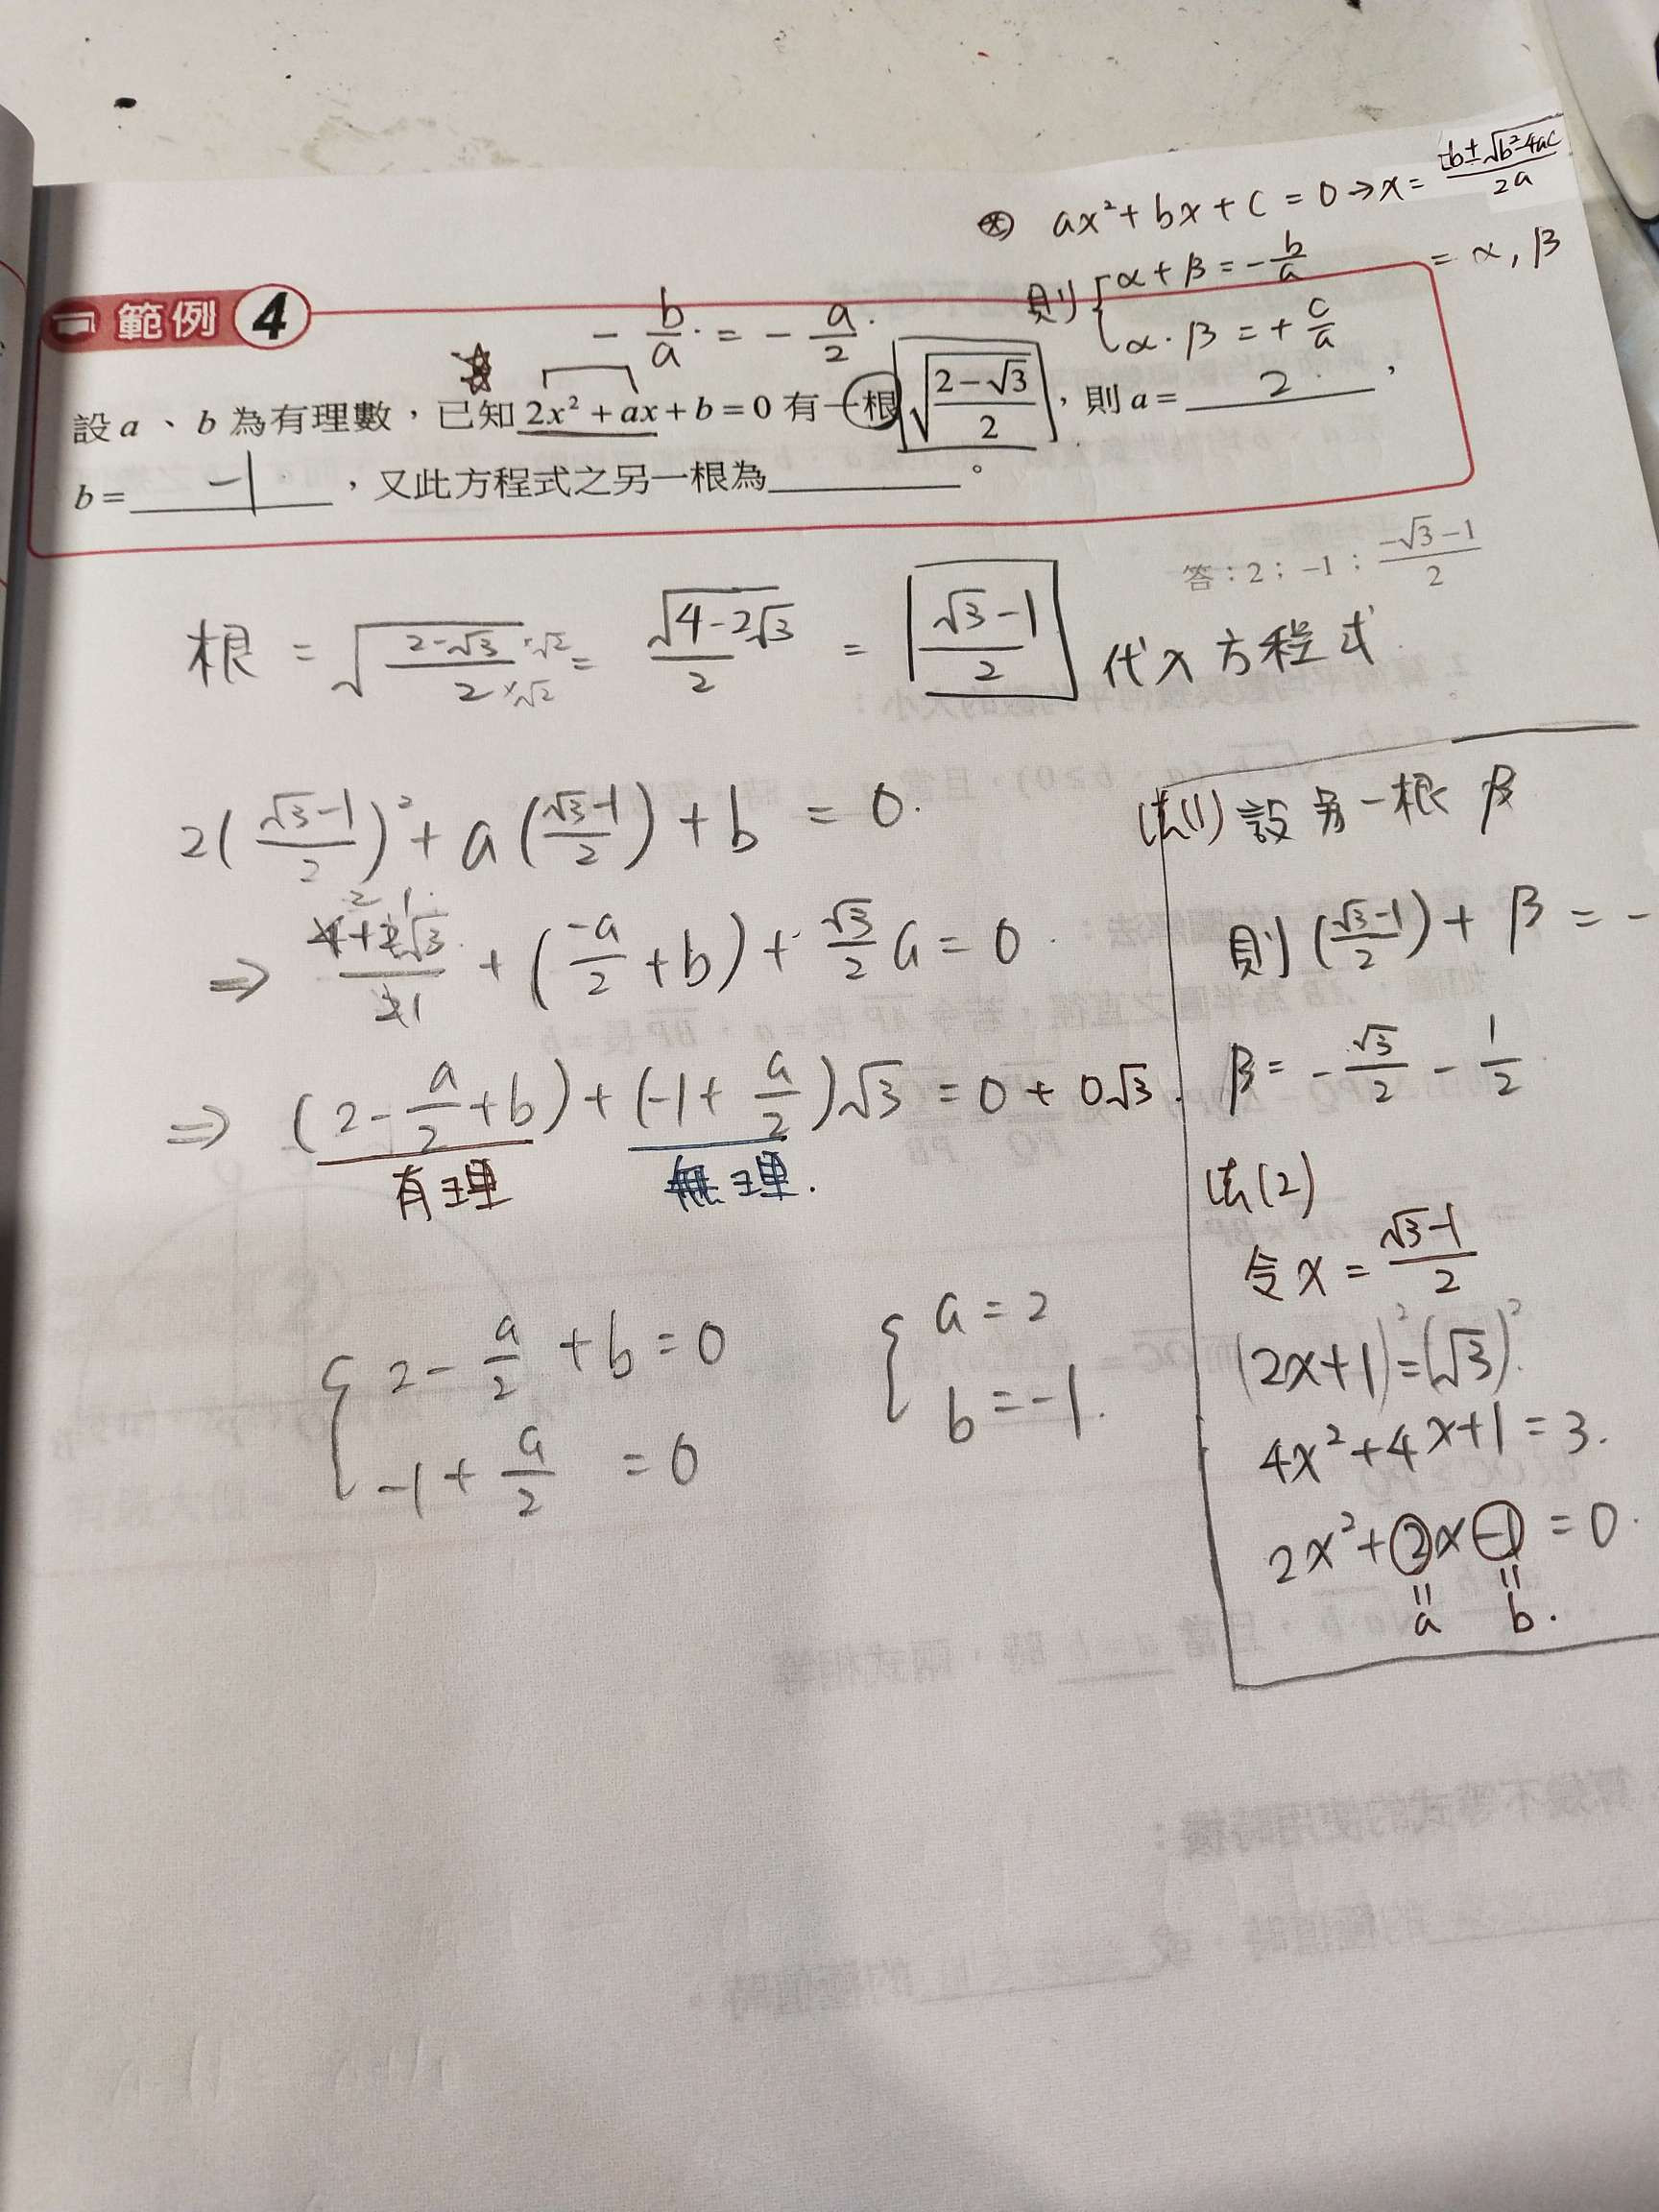 ⊛ ax²+bx+c=0→x=(-b±√(b²-4ac))/2a
則{α+β=-b/a =α,β
α·β=+c/a
範例 4
-b/a.=-a/2.
設 a 、 b 為有理數，已知 2x²+ax+b=0 有一根√((2-√3)/2)，則 a= 2 ，
b= -1 ，又此方程式之另一根為________。
答：2；-1；(-√3-1)/2
根=√((2-√3)/2) ×√2 ×√2 = √(4-2√3)/2 = (√3-1)/2 代入方程式
2((√3-1)/2)²+a((√3-1)/2)+b=0.
⇒ + (-a/2+b)+√3/2 a=0.
⇒(2-a/2+b)+(-1+a/2)√3=0+0√3.
有理 無理.
{2-a/2+b=0
-1+a/2=0
{a=2
b=-1.
法(1)設另一根β
則((√3-1)/2)+β=-
β=-√3/2-1/2
法(2)
令x=(√3-1)/2
(2x+1)²=(√3)².
4x²+4x+1=3.
2x²+2x-1=0.
= =
a b.